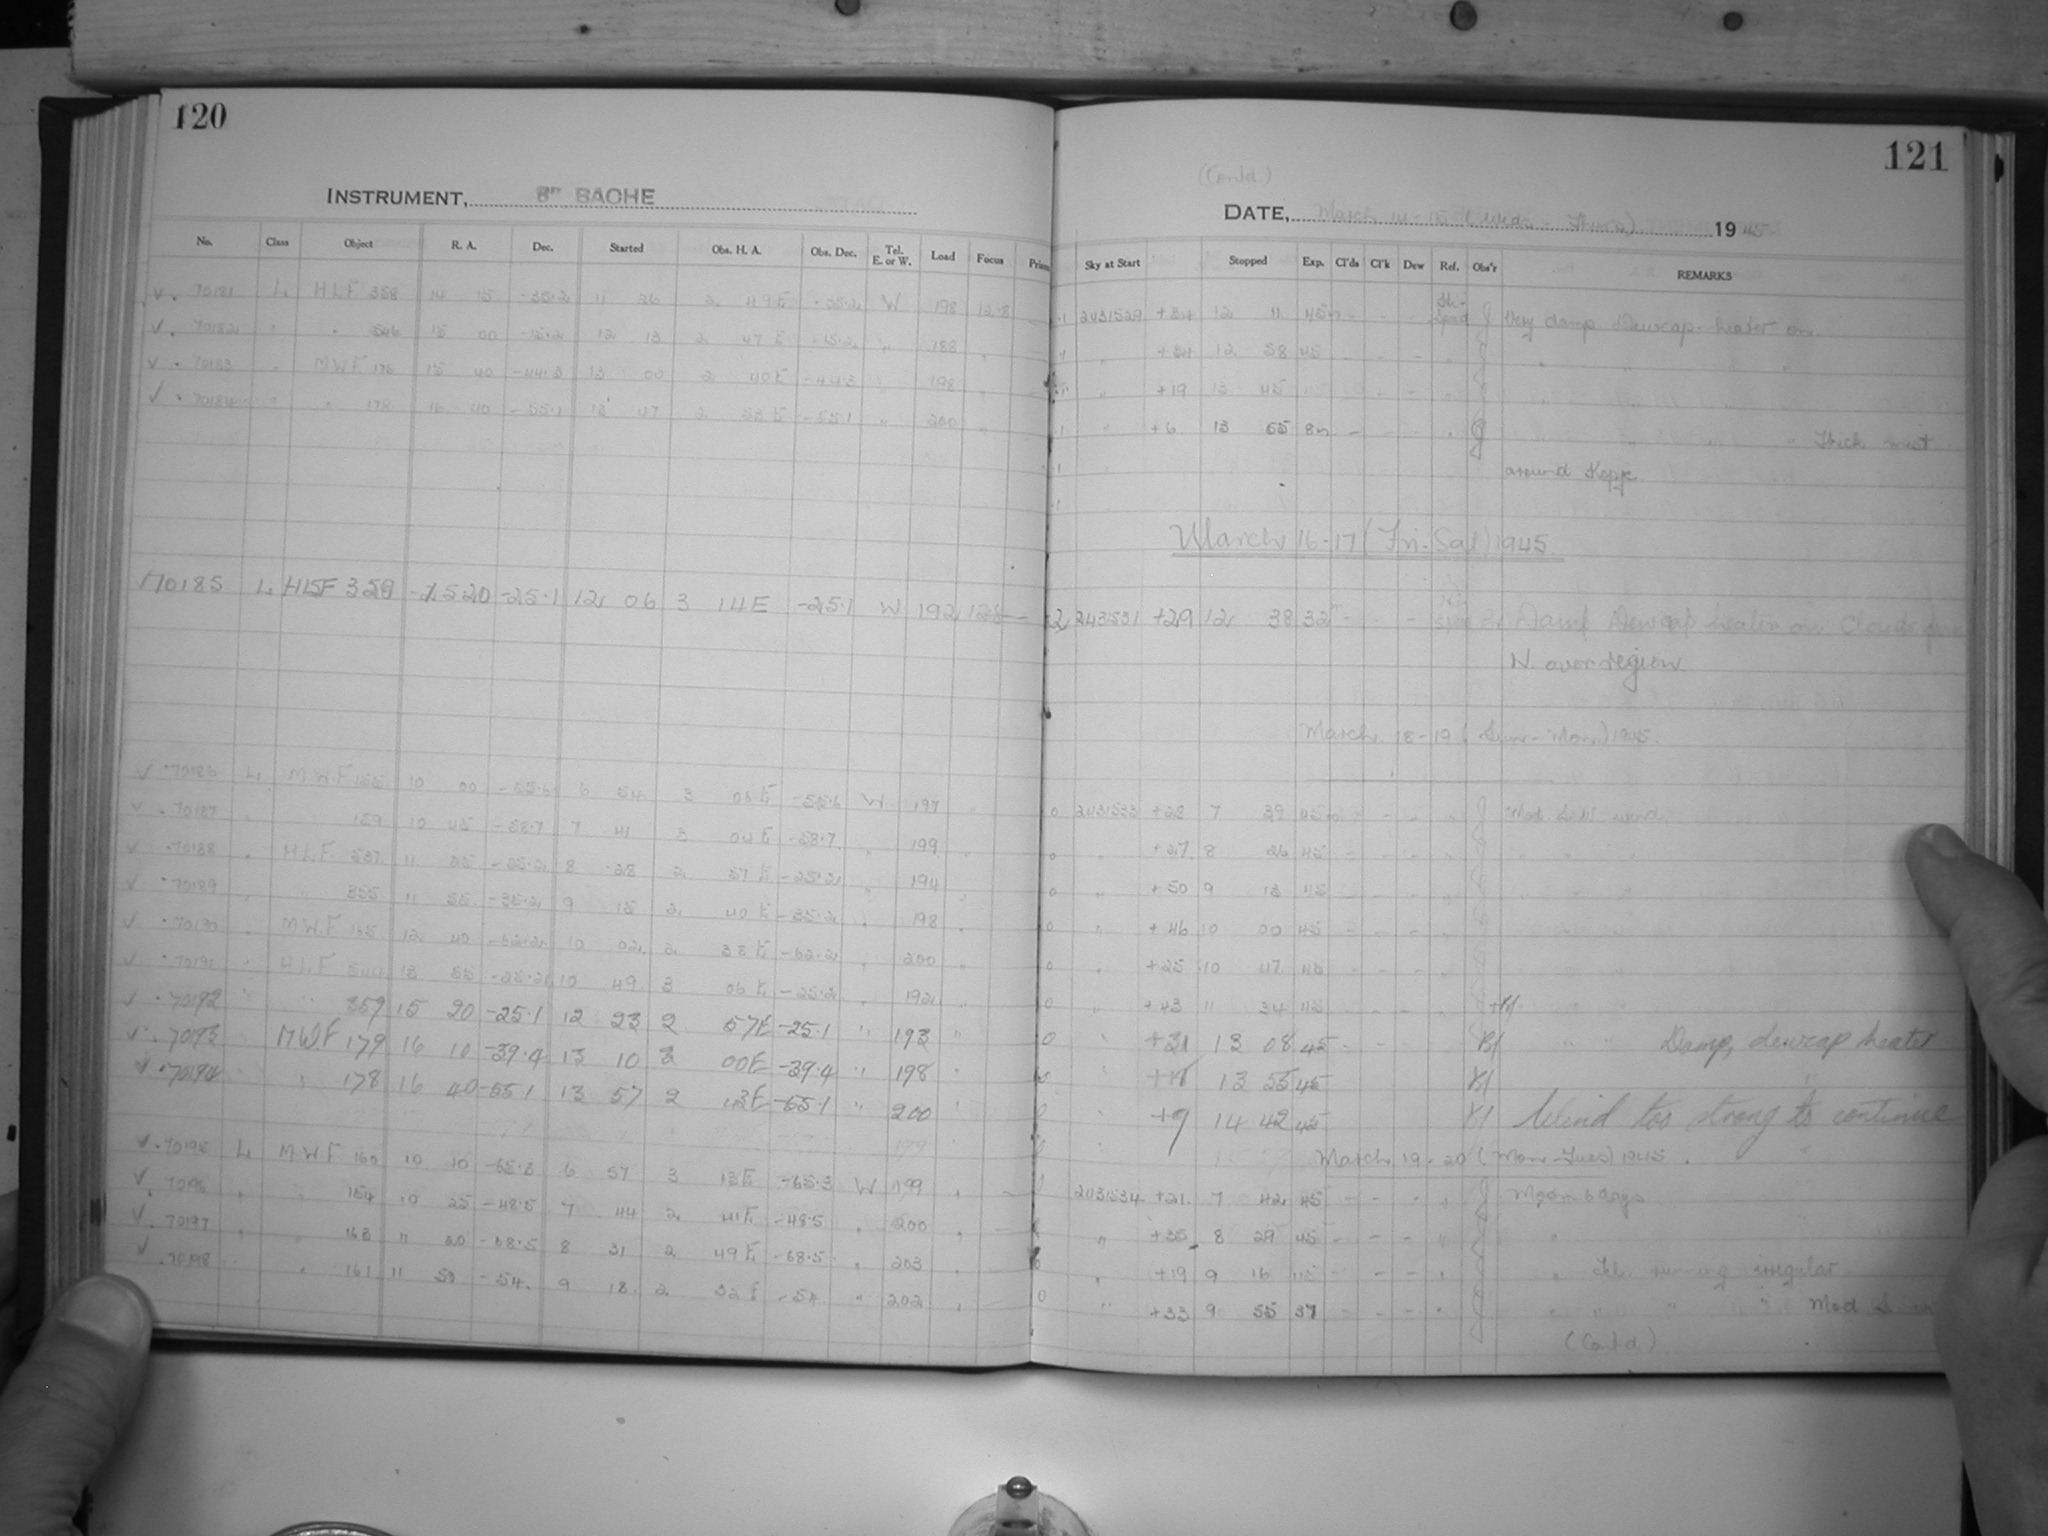 120
INSTRUMENT, 8" BACHE
No. Class Object R. A. Dec. Started Obs. H. A. Obs. Dec. Tel. E. or W. Load Focus Prism
√ . 70181 L HLF 358 14 15 -35.2 11 26 2 49E -35.2 W 198 12.8
√ . 70182 " " 546 15 00 -15.2 12 13 2 47E -15.2 " 188 "
√ . 70183 " MWF 176 15 40 -44.3 13 00 2 40E -44.3 " 198 "
√ . 70184 " " 178 16 40 -55.1 13 47 2 53E -55.1 " 200 "
√70185 L HLF 359 15 20 -25.1 12 06 3 14E -25.1 W 192 12.8 —
√ . 70186 L MWF 10 00 -55.6 6 54 3 06E -55.6 W 197
√ . 70187 " " 159 10 45 -58.7 7 41 3 04E -58.7 " 199
√ . 70188 " HLF 537 11 25 -25.2 8 28 2 57E -25.2 " 194
√ . 70189 " " 355 11 55 -35.2 9 15 2 40E -35.2 " 198
√ . 70190 " MWF 165 12 40 -62.2 10 02 2 38E -62.2 " 200
√ . 70191 " HLF 13 55 -25.2 10 49 3 06E -25.2 " 192 "
√ . 70192 " " 359 15 20 -25.1 12 23 2 57E -25.1 " 193 "
√ . 70193 MWF 179 16 10 -39.4 13 10 3 00E -39.4 " 198 "
√ . 70194 " 178 16 40 -55.1 13 57 2 43E -55.1 " 200 "
√ . 70195 L MWF 160 10 10 -65.3 6 57 3 13E -65.3 W 199 "
√ . 70196 " " 154 10 25 -48.5 7 44 2 41E -48.5 " 200 " —
√ . 70197 " " 163 11 20 -68.5 8 31 2 49E -68.5 " 203 "
√ . 70198 " " 161 11 50 -54. 9 18 2 32E -54 " 202 " —
121
(Contd.)
DATE, March 14-15 (Weds - Thurs) 1945
Sky at Start Stopped Exp. Cl'ds Cl'k Dew Ref. Obs'r REMARKS
2431529 +34 12 11 45m - - - J Very damp Dewcap heater on.
" +34 12 58 45 - - - " J " " "
" +19 13 45 - - " J
" +6 13 55 8m - - - " J " Thick mist
around Kopje
March 16-17 (Fri-Sat) 1945
2431531 +29 12 38 32m - - - Damp Dewcap heater on Clouds
N. over region
March 18-19 (Sun-Mon) 1945.
0 2431533 +28 7 39 45m - - - " J Mod S.W. wind
0 " +27 8 26 45 - - - " J " "
0 " +50 9 13 45 - - - " J " "
0 " +46 10 00 45 - - - " J
0 " +25 10 47 45 - - - " J
0 " +43 11 34 45 - - - "
0 " +31 13 08 45 - - Bl " " Damp, dewcap heater
" 13 55 45 Bl "
" +9 14 42 45 Bl Wind too strong to continue
March 19-20 (Mon-Tues) 1945.
2431534 +21 7 42 45 - - " " J Moon 6 days
" +35 8 29 45 - - - " J "
" +19 9 16 45 - - - " J " Tel. running irregular
0 " +33 9 55 37 - - - " J " " " " Mod S.
(Contd)